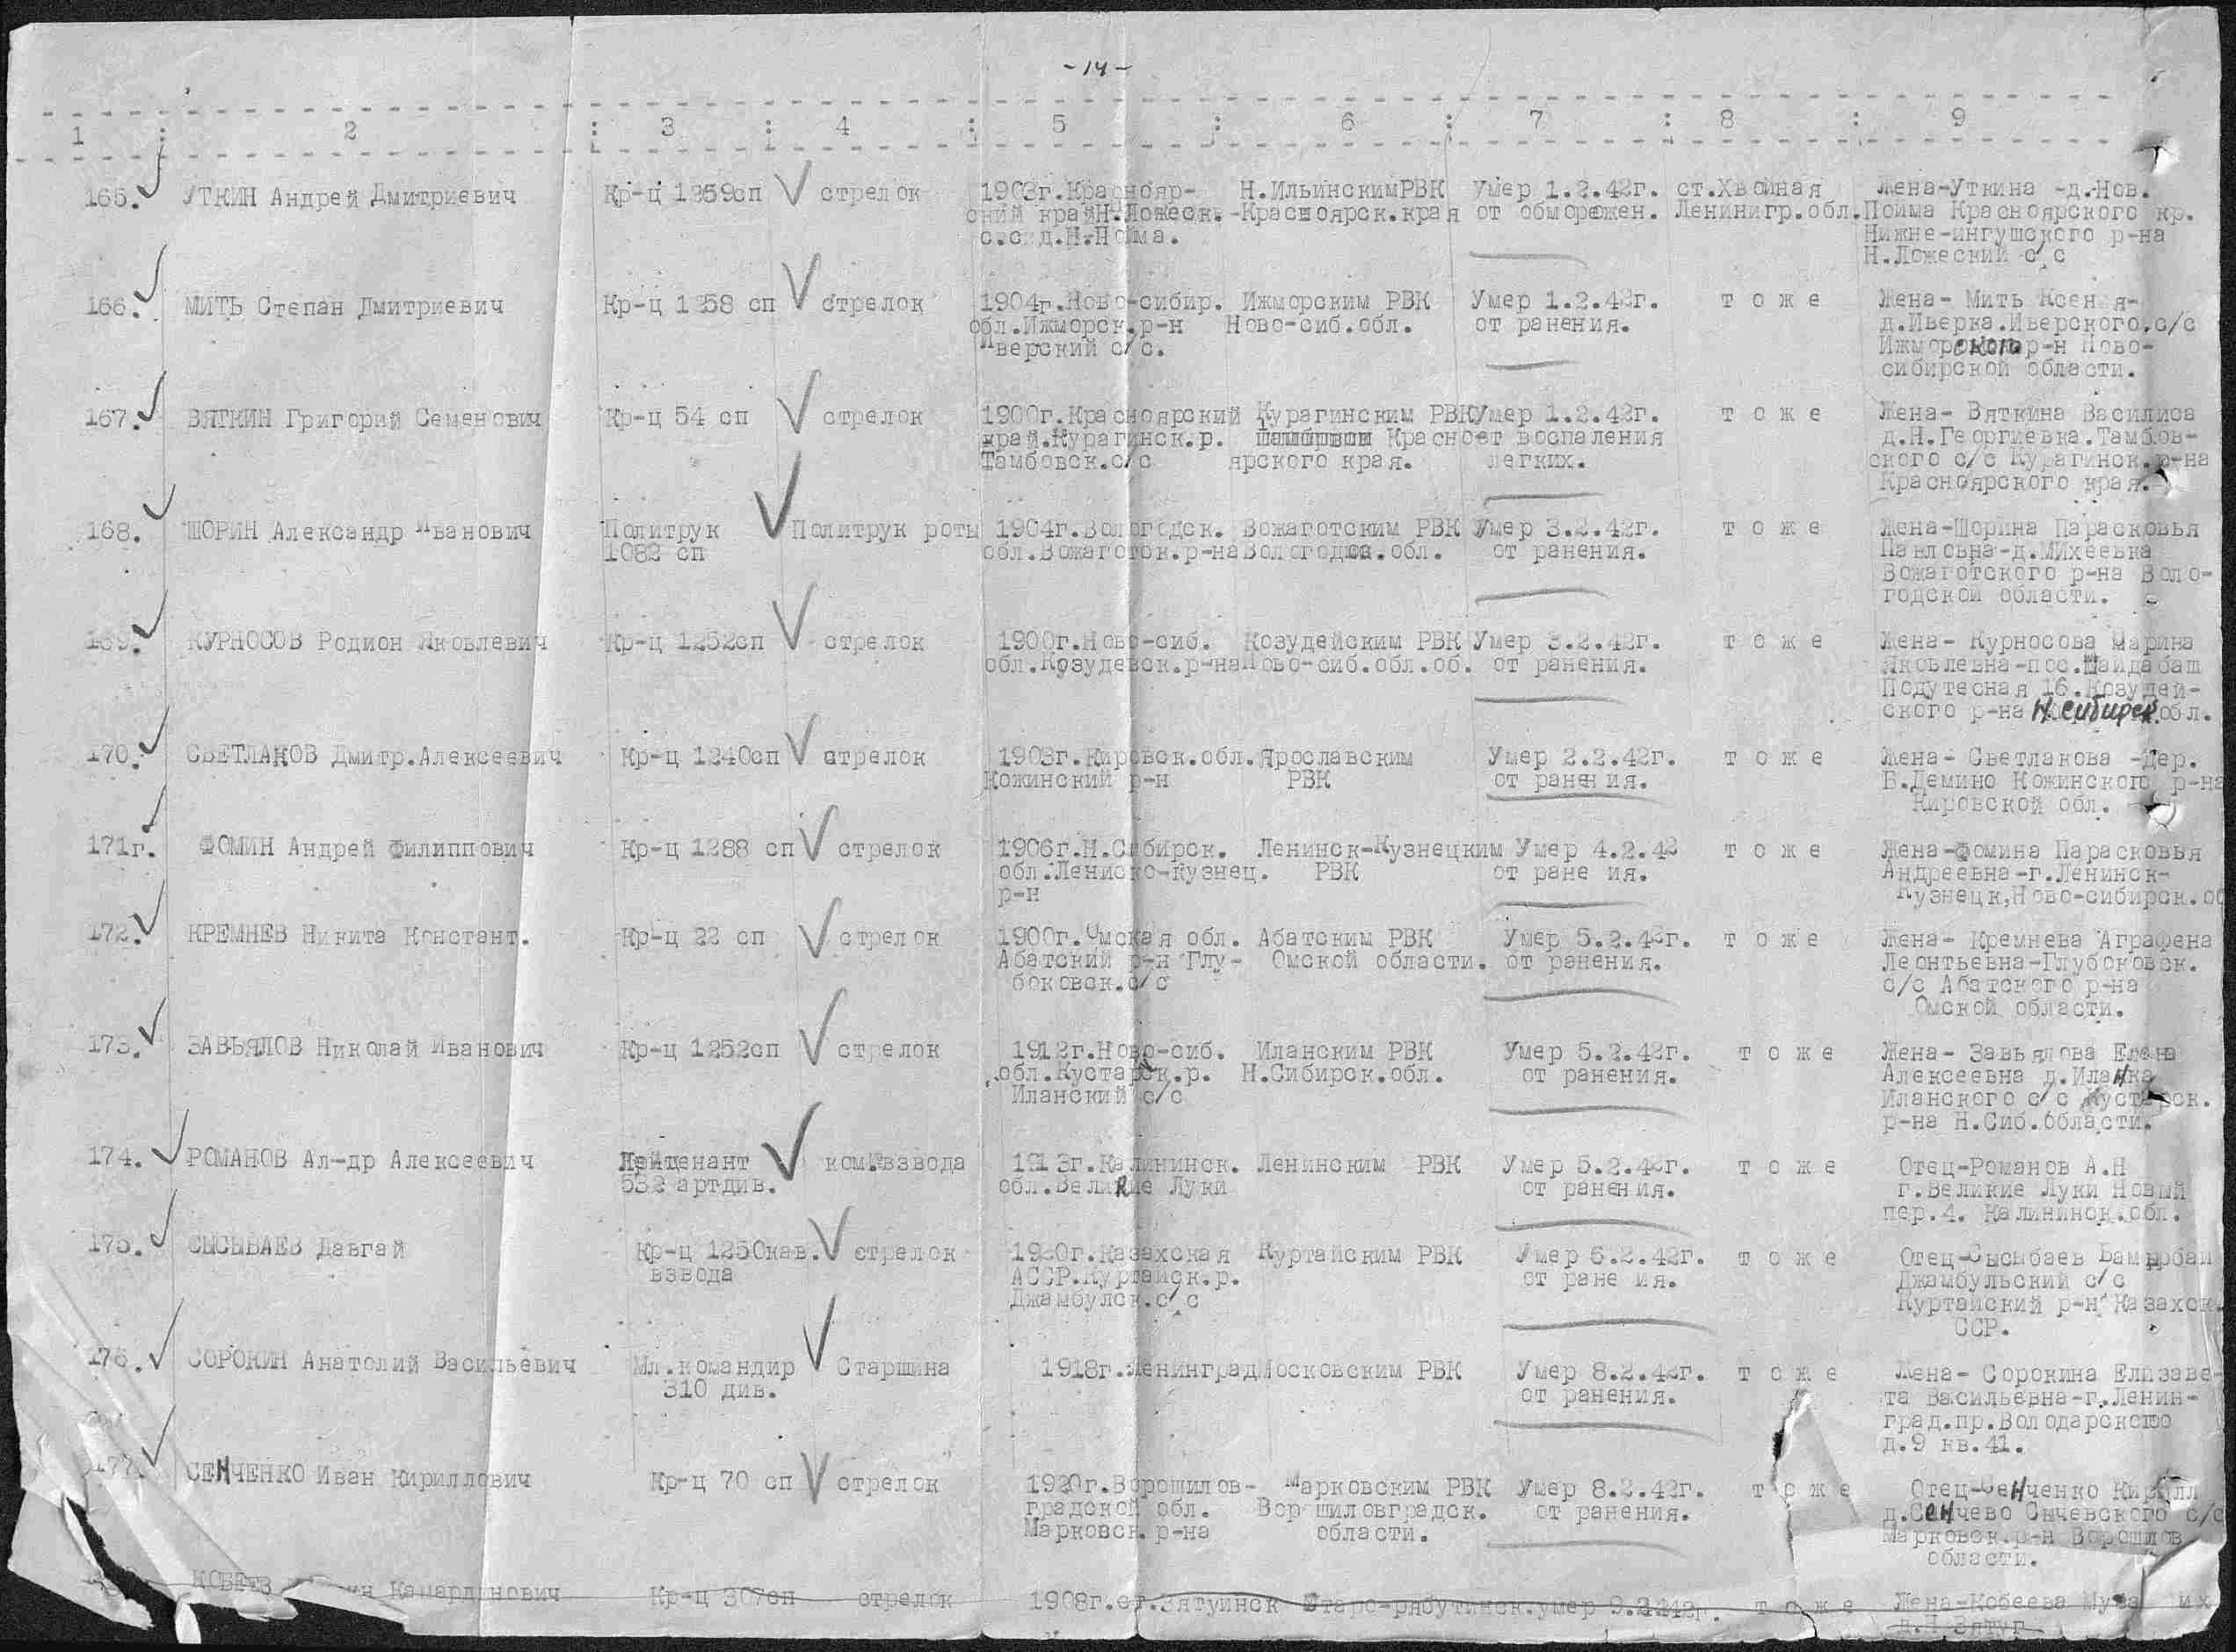 -14-
1 : 2 : 3 : 4 : 5 : 6 : 7 : 8 : 9
165. УТКИН Андрей Дмитриевич Кр-ц 1259сп стрелок 1903г.Краснояр- Н.ИльинскимРВК Умер 1.2.42г. ст.Хвойная Жена-Уткина -д.Нов.
ский край Н.Ложеск.-Красноярск.края от обморожен. Ленинигр.обл.Пойма Красноярского кр.
с.с д.Н-Пойма. Нижне-ингушского р-на
Н.Ложеский с/с
166. МИТЬ Степан Дмитриевич Кр-ц 1258 сп стрелок 1904г.Ново-сибир. Ижморским РВК Умер 1.2.42г. т о ж е Жена- Мить Ксения-
обл.Ижморск.р-н Ново-сиб.обл. от ранения. д.Иверка.Иверского.с/с
Иверский с/с. Ижморского р-н Ново-
сибирской области.
167. ВЯТКИН Григорий Семенович Кр-ц 54 сп стрелок 1900г.Красноярский Курагинским РВК Умер 1.2.42г. т о ж е Жена- Вяткина Василиса
край.Курагинск.р. Красно от воспаления д.Н.Георгиевка.Тамбов-
Тамбовск.с/с ярского края. легких. ского с/с Курагинск.р-на
Красноярского края.
168. ШОРИН Александр Иванович Политрук Политрук роты 1904г.Вологодск. Вожаготским РВК Умер 3.2.42г. т о ж е Жена-Шорина Парасковья
1082 сп обл.Вожаготск.р-на Вологодск.обл. от ранения. Павловна-д.Михеевка
Вожаготского р-на Воло-
годской области.
169. КУРНОСОВ Родион Яковлевич Кр-ц 1252сп стрелок 1900г.Ново-сиб. Козудейским РВК Умер 3.2.42г. т о ж е Жена- Курносова Марина
обл.Козудевск.р-на Ново-сиб.обл.об. от ранения. Яковлевна-пос.Шайдабаш
Подутесная 16.Козудей-
ского р-на Н.Сибирск.обл.
170. СВЕТЛАКОВ Дмитр.Алексеевич Кр-ц 1240сп стрелок 1903г.Кировск.обл. Ярославским Умер 2.2.42г. т о ж е Жена- Светлакова -Дер.
Кожинский р-н РВК от ранения. Б.Демино Кожинского р-на
Кировской обл.
171г. ФОМИН Андрей Филиппович Кр-ц 1288 сп стрелок 1906г.Н.Сибирск. Ленинск-Кузнецким Умер 4.2.42 т о ж е Жена-Фомина Парасковья
обл.Лениско-кузнец. РВК от ране ия. Андреевна-г.Ленинск-
р-н Кузнецк,Ново-сибирск.об
172. КРЕМНЕВ Никита Констант. Кр-ц 22 сп стрелок 1900г.Омская обл. Абатским РВК Умер 5.2.42г. т о ж е Жена- Кремнева Аграфена
Абатский р-н Глу- Омской области. от ранения. Леонтьевна-Глубоковск.
боковск.с/с с/с Абатского р-на
Омской области.
173. ЗАВЬЯЛОВ Николай Иванович Кр-ц 1252сп стрелок 1912г.Ново-сиб. Иланским РВК Умер 5.2.42г. т о ж е Жена- Завьялова Елена
обл.Кустарск.р. Н.Сибирск.обл. от ранения. Алексеевна д.Иланка
Иланский с/с Иланского с/с Кустарск.
р-на Н.Сиб.области.
174. РОМАНОВ Ал-др Алексеевич Лейтенант ком.взвода 1913г.Калининск. Ленинским РВК Умер 5.2.42г. т о ж е Отец-Романов А.Н
532 артдив. обл.Великие Луки от ранения. г.Великие Луки Новый
пер.4. Калининск.обл.
175. СЫСЫБАЕВ Давгай Кр-ц 1250кав. стрелок 1920г.Казахская Куртайским РВК Умер 6.2.42г. т о ж е Отец-Сысыбаев
взвода АССР.Куртайск.р. от ране ия. Джамбульский с/с
Джамбулск.с/с Куртайский р-н Казахск.
ССР.
176. СОРОКИН Анатолий Васильевич Мл.командир Старшина 1918г.Ленинград Московским РВК Умер 8.2.42г. т о ж е Жена- Сорокина Елизаве-
310 див. от ранения. та Васильевна-г.Ленин-
град.пр.Володарского
д.9 кв.41.
177. СЕНЧЕНКО Иван Кириллович Кр-ц 70 сп стрелок 1920г.Ворошилов- Марковским РВК Умер 8.2.42г. т о ж е Отец-Сенченко Кирилл
градской обл. Ворошиловградск. от ранения. д.Сенчево Сычевского с/с
Марковск.р-на области. Марковск.р-н Ворошилов
области.
Камардинович Кр-ц 307сп стрелок 1908г.ст.Зятуинск Старо-рябутинск.умер 9.2.42г. т о ж е Жена-Кобеева